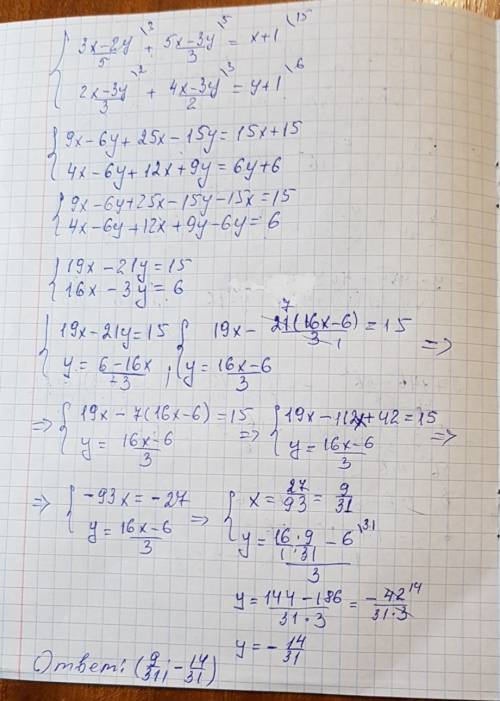 { (3x-2y)/5 \3 + (5x-3y)/3 \5 = x+1 \15
(2x-3y)/3 \2 + (4x-3y)/2 \3 = y+1 \6
{ 9x-6y+25x-15y=15x+15
4x-6y+12x+9y=6y+6
{ 9x-6y+25x-15y-15x=15
4x-6y+12x+9y-6y=6
{ 19x-21y=15
16x-3y=6
{ 19x-21y=15 { 19x- 7 21(16x-6)/3 1 =15
y=(6-16x)/-3 , y=(16x-6)/3 =>
=> { 19x-7(16x-6)=15 => { 19x-112x+42=15 =>
y=(16x-6)/3 y=(16x-6)/3
=> { -93x=-27 => { x=27/93=9/31
y=(16x-6)/3 y=((16·9)/(1·31)-6 \31)/3
y=(144-186)/(31·3)=-42 14/(31·3)
y=-14/31
Ответ: (9/31; -14/31)